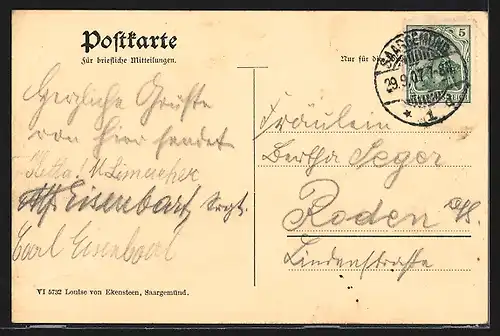 Postkarte
Für briefliche Mitteilungen.
Nur für die
5
SAARGEMÜND
* 1
Herzliche Grüße
von hier sendet
Eisenbart Sergt.
Carl Eisenbart
Fräulein
Bertha Jager
Roden a/S.
Lindenstraße
VI 5732 Louise von Ekensteen, Saargemünd.